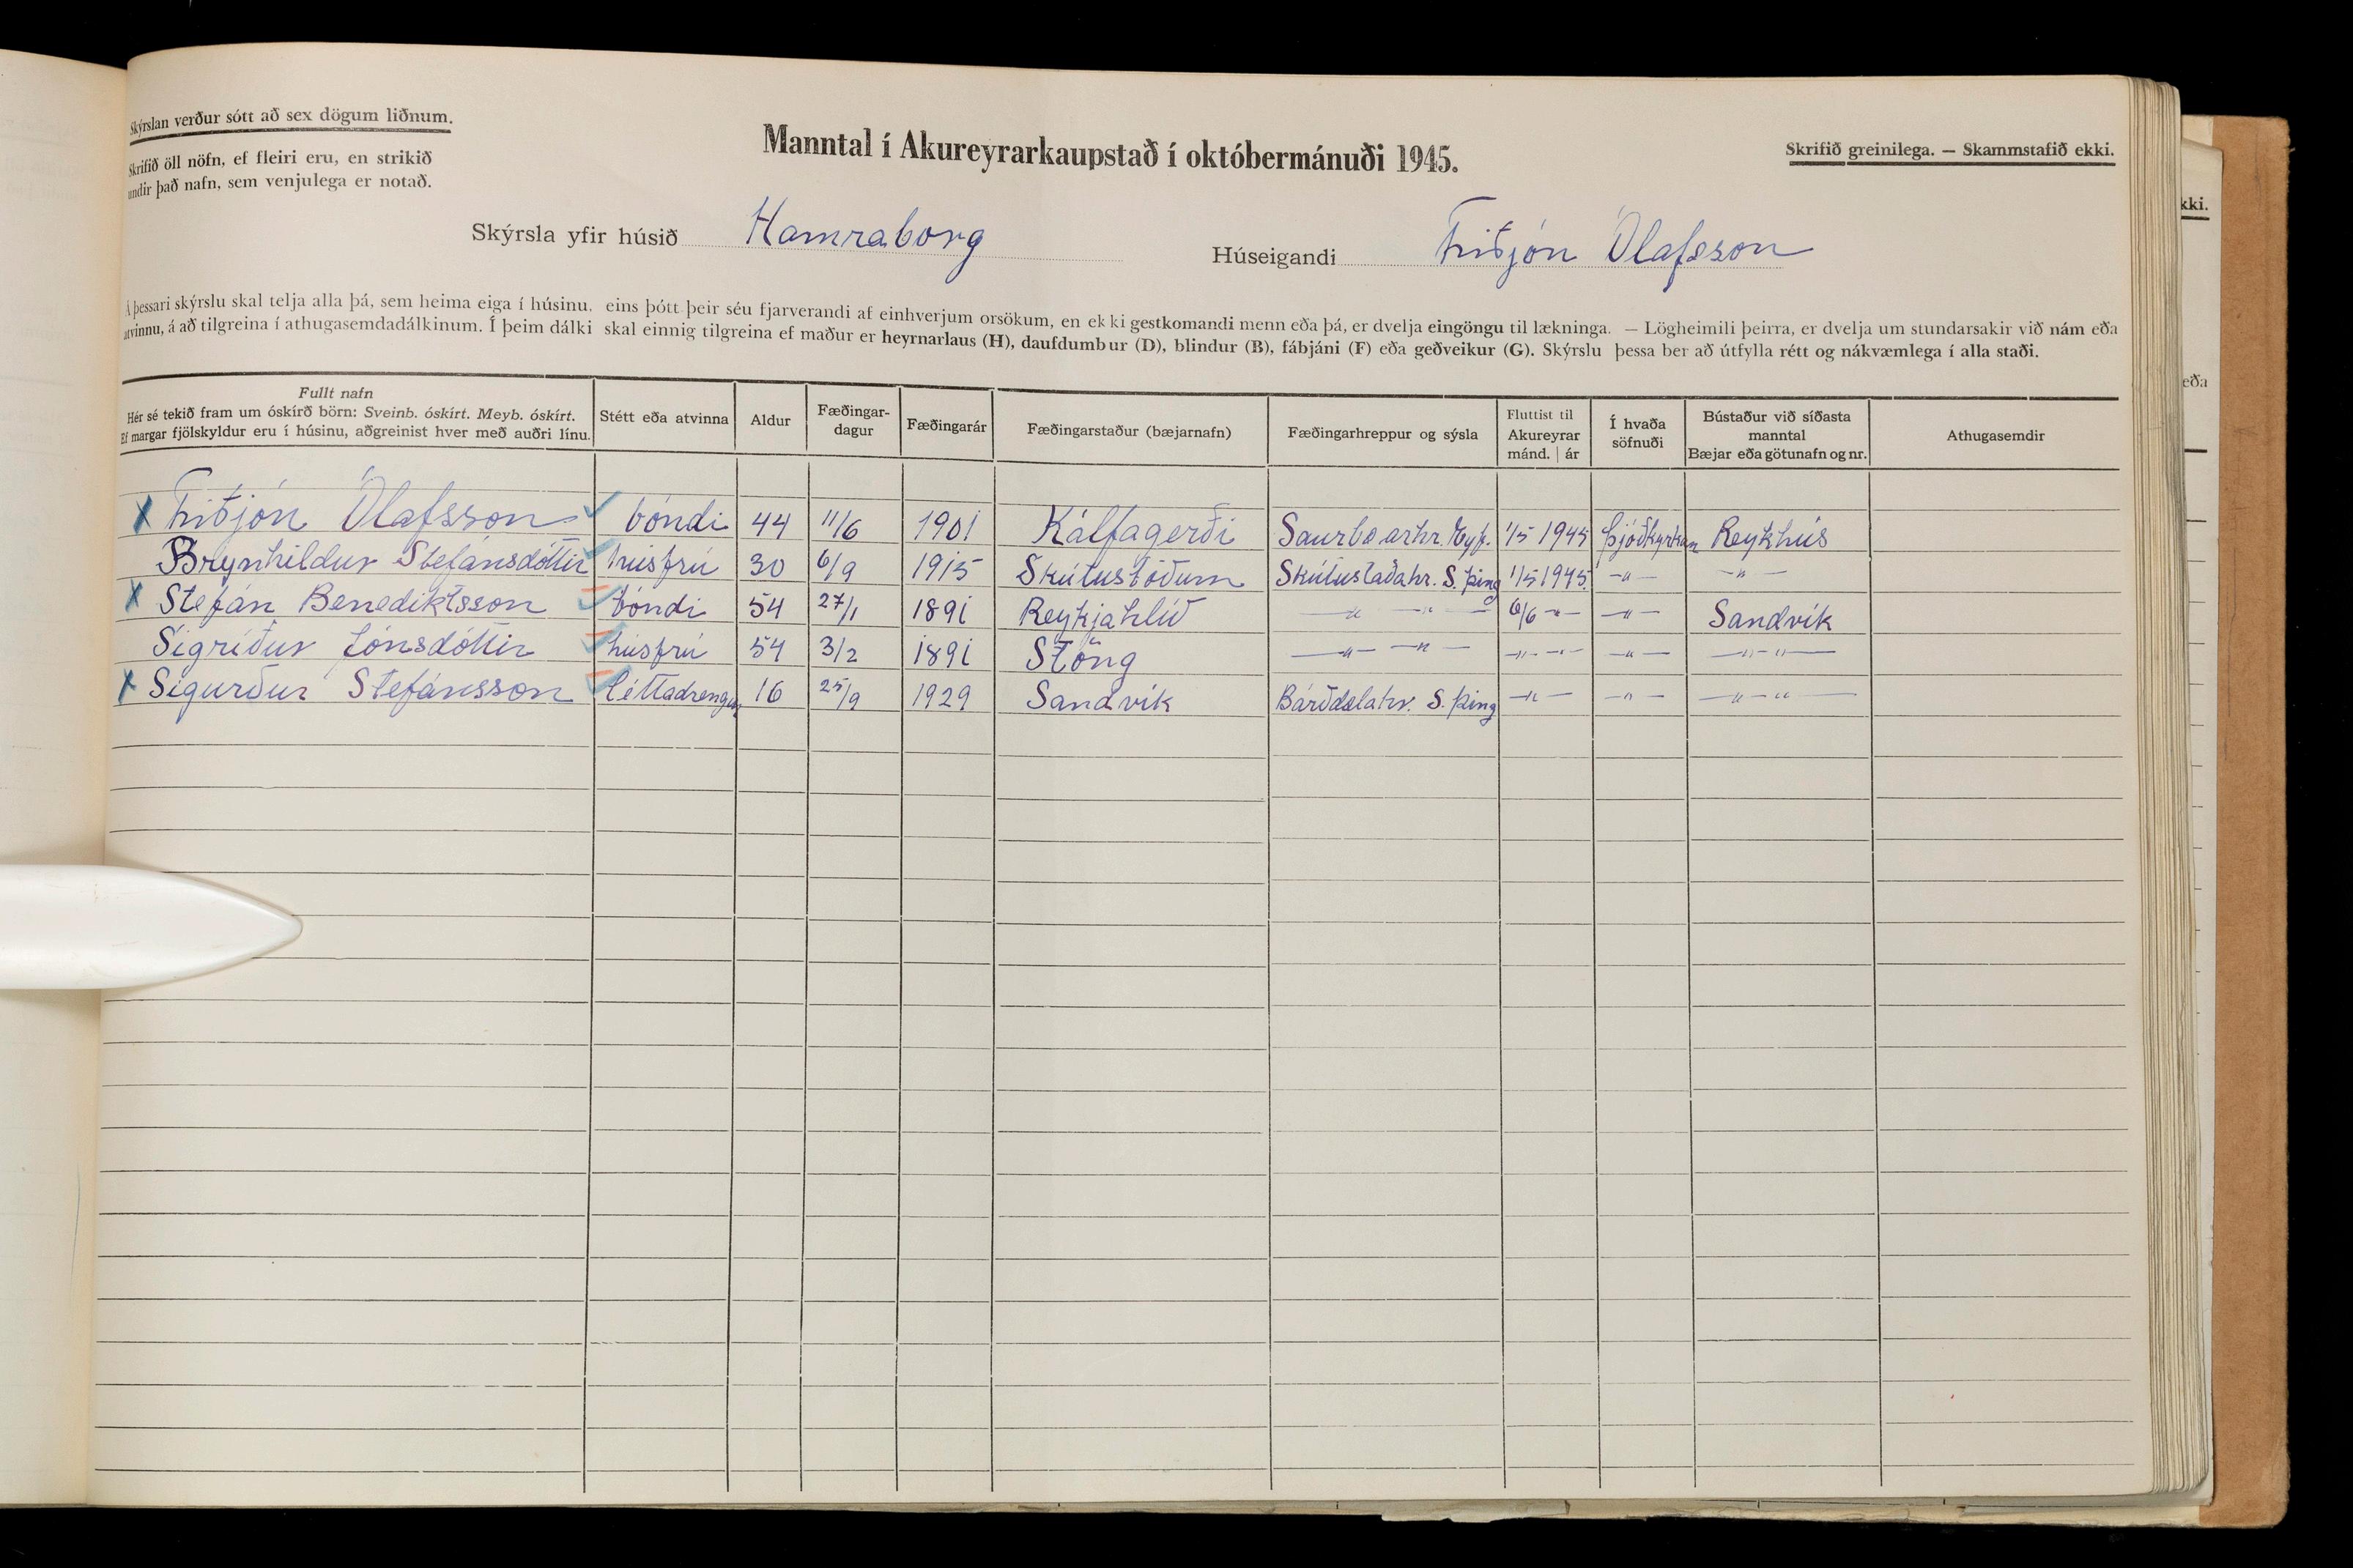 Skýrslan verður sótt að sex dögum liðnum.
Skrifið öll nöfn, ef fleiri eru, en strikið
undir það nafn, sem venjulega er notað.
Manntal í Akureyrarkaupstað í októbermánuði 1945.
Skrifið greinilega. — Skammstafið ekki.
Skýrsla yfir húsið Hamraborg Húseigandi Friðjón Ólafsson
Á þessari skýrslu skal telja alla þá, sem heima eiga í húsinu, eins þótt þeir séu fjarverandi af einhverjum orsökum, en ekki gestkomandi menn eða þá, er dvelja eingöngu til lækninga. — Lögheimili þeirra, er dvelja um stundarsakir við nám eða
atvinnu, á að tilgreina í athugasemdadálkinum. Í þeim dálki skal einnig tilgreina ef maður er heyrnarlaus (H), daufdumbur (D), blindur (B), fábjáni (F) eða geðveikur (G). Skýrslu þessa ber að útfylla rétt og nákvæmlega í alla staði.
Fullt nafn
Hér sé tekið fram um óskírð börn: Sveinb. óskírt. Meyb. óskírt.
Ef margar fjölskyldur eru í húsinu, aðgreinist hver með auðri línu.
Stétt eða atvinna
Aldur
Fæðingar-
dagur
Fæðingarár
Fæðingarstaður (bæjarnafn)
Fæðingarhreppur og sýsla
Fluttist til
Akureyrar
mánd. | ár
Í hvaða
söfnuði
Bústaður við síðasta
manntal
Bæjar eða götunafn og nr.
Athugasemdir
X Friðjón Ólafsson ✓ bóndi 44 11/6 1901 Kálfagerði Saurbæarhr. Eyf. 1/5 1945 Þjóðkyrkan Reykhús
Brynhildur Stefánsdóttir ✓ húsfrú 30 6/9 1915 Skútustöðum Skútustaðahr. S. Þing 1/5 1945. —"— —"—
X Stefán Benediktsson ✓ bóndi 54 27/1 1891 Reykjahlíð —"— —"— 6/6 —"— —"— Sandvík
Sigríður Jónsdóttir ✓ húsfrú 54 3/2 1891 Stöng —"— —"— —"— —"— —"— —"—"—
X Sigurður Stefánsson ✓ léttadrengur 16 25/9 1929 Sandvík Bárðdælahr. S. Þing —"— —"— —"—"—
kki.
eða